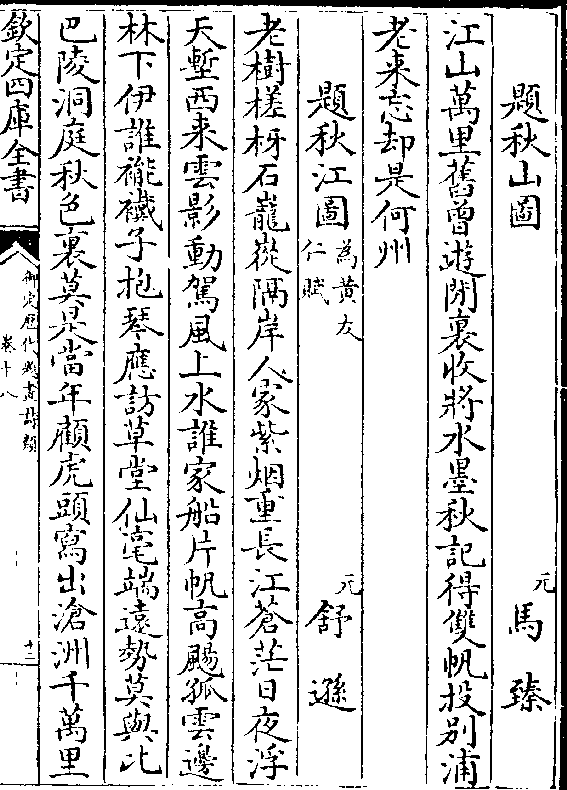 題秋山圖 元 馬臻
江山萬里舊曾遊閒裏收將水墨秋記得雙帆投别浦
老来忘却是何州
題秋江圖 為黄友仁賦 元 舒遜
老樹槎枒石巃嵸隔岸人家紫烟重長江蒼茫日夜浮
天塹西来雲影動駕風上水誰家船片帆高颺孤雲邊
林下伊誰褦襶子抱琴應訪草堂仙毫端遠勢莫與比
巴陵洞庭秋色裏莫是當年顧虎頭寫出滄洲千萬里
欽定四庫全書
御定歷代題畫詩類
卷十八
十二